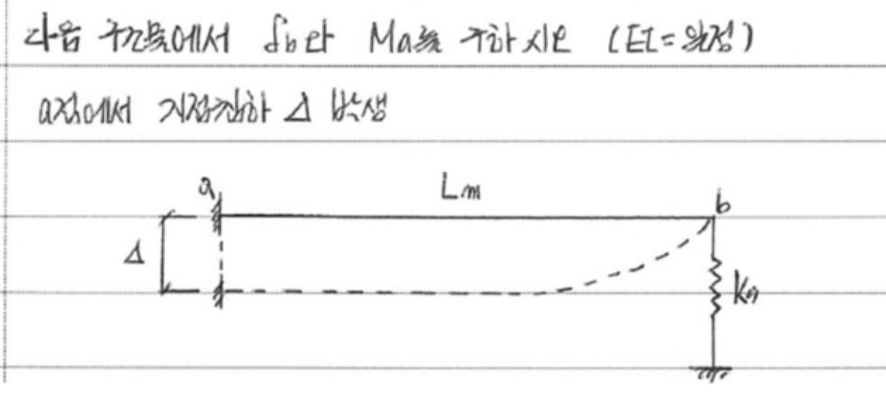 다음 구조물에서 δb와 Ma를 구하시오 (EI=일정)
a점에서 지점침하 Δ 발생
a Lm b
Δ
kn